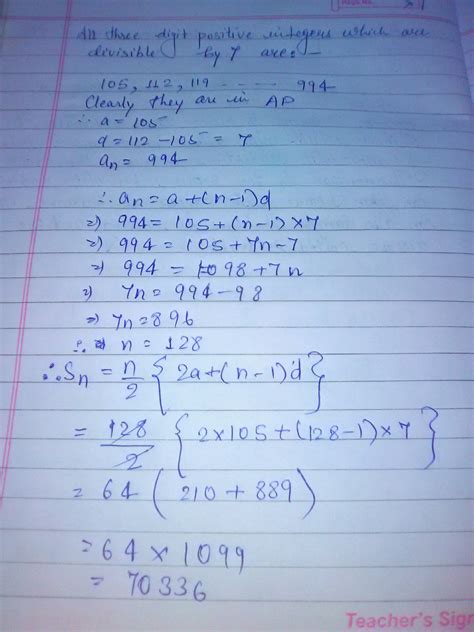 All three digit positive integers which are
divisible by 7 are:-
105, 112, 119 ----- 994
Clearly they are in AP
∴ a = 105
d = 112 - 105 = 7
an = 994
∴ an = a + (n-1)d
=) 994 = 105 + (n-1) × 7
=) 994 = 105 + 7n - 7
=) 994 = 98 + 7n
=) 7n = 994 - 98
=) 7n = 896
∴ n = 128
∴ Sn = n/2 { 2a + (n-1)d }
= 128/2 { 2×105 + (128-1) × 7 }
= 64 ( 210 + 889 )
= 64 × 1099
= 70336
Teacher's Sign